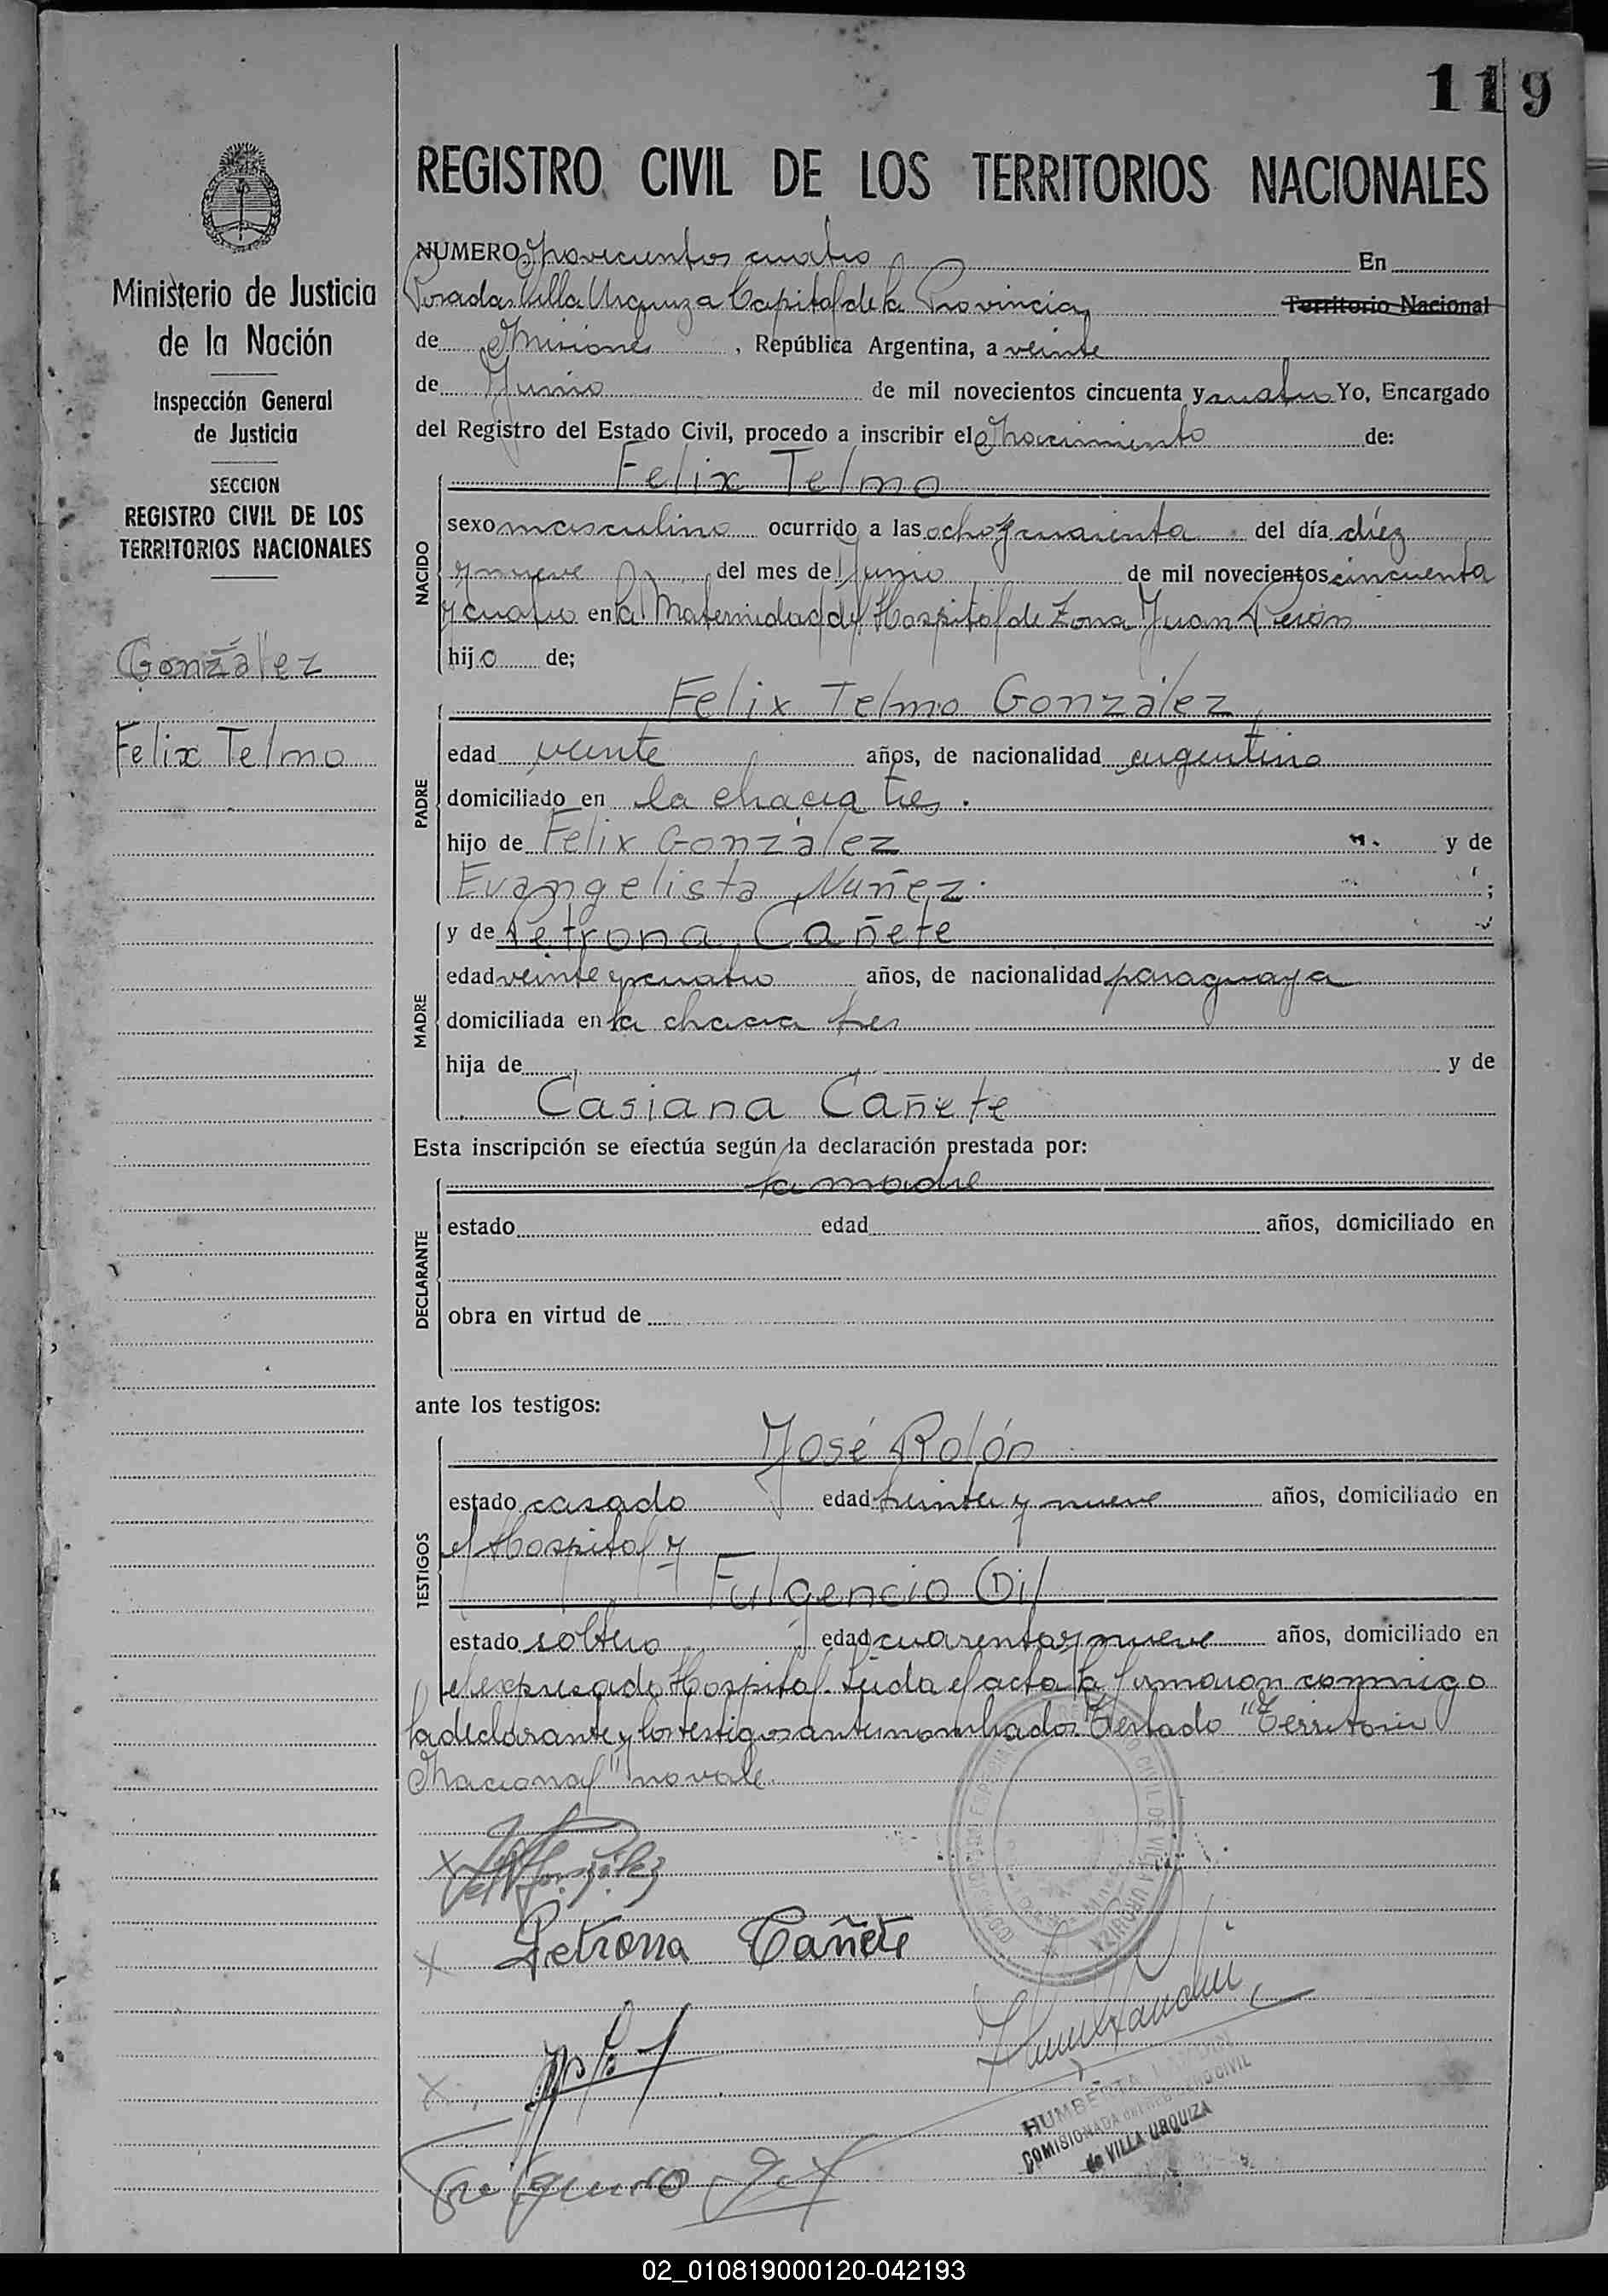 119
REGISTRO CIVIL DE LOS TERRITORIOS NACIONALES
Ministerio de Justicia
de la Nación
Inspección General
de Justicia
SECCION
REGISTRO CIVIL DE LOS
TERRITORIOS NACIONALES
González
Felix Telmo
NUMERO Novecientos cuatro En
Posadas Villa Urquiza Capital de la Provincia Territorio Nacional
de Misiones, República Argentina, a veinte
de Junio de mil novecientos cincuenta y cuatro Yo, Encargado
del Registro del Estado Civil, procedo a inscribir el Nacimiento de:
Felix Telmo
NACIDO
sexo masculino ocurrido a las ocho y cuarenta del día diez
y nueve del mes de Junio de mil novecientos cincuenta
y cuatro en la Maternidad del Hospital de Zona Juan Perón
hijo de;
Felix Telmo González,
PADRE
edad veinte años, de nacionalidad argentino
domiciliado en la chacra tres.
hijo de Felix González y de
Evangelista Nuñez.;
y de Petrona Cañete
MADRE
edad veinte y cuatro años, de nacionalidad paraguaya
domiciliada en la chacra tres
hija de y de
Casiana Cañete
Esta inscripción se efectúa según la declaración prestada por:
la madre
DECLARANTE
estado edad años, domiciliado en
obra en virtud de
ante los testigos:
José Rolón
TESTIGOS
estado casado edad treinta y nueve años, domiciliado en
el Hospital y
Fulgencio Gil
estado soltero edad cuarenta y nueve años, domiciliado en
el expresado Hospital. Leida el acta la firmaron conmigo
la declarante y los testigos antenombrados. Testado "Territorio
Nacional" no vale.
González
Petrona Cañete
HUMBERTA
COMISIONADA del REGISTRO CIVIL
de VILLA URQUIZA
Fulgencio Gil
02_010819000120-042193